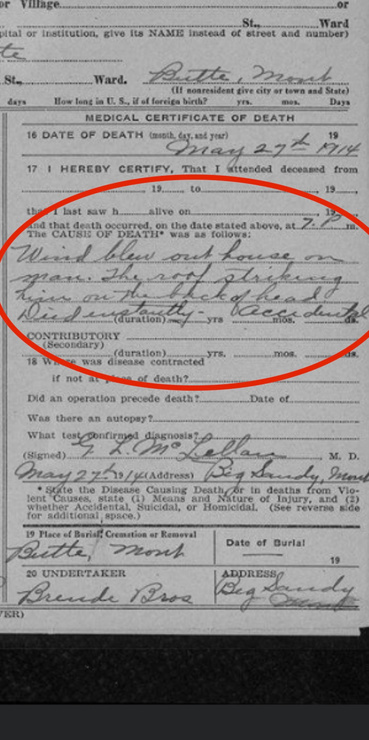 or Village or
St., Ward
pital or institution, give its NAME instead of street and number)
te
St., Ward. Butte, Mont
(If nonresident give city or town and State)
days How long in U. S., if of foreign birth? yrs. mos. Days
MEDICAL CERTIFICATE OF DEATH
16 DATE OF DEATH (month, day, and year) 19
May 27th 1914
17 I HEREBY CERTIFY, That I attended deceased from
19 to 19
that I last saw h alive on 19
and that death occurred, on the date stated above, at 7. P. m.
The CAUSE OF DEATH* was as follows:
Wind blew out house on
man. The roof striking
him on the back of head
Died instantly - Accidental
(duration) yrs mos. ds.
CONTRIBUTORY
(Secondary)
(duration) yrs. mos. ds.
18 Where was disease contracted
if not at place of death?
Did an operation precede death? Date of
Was there an autopsy?
What test confirmed diagnosis?
(Signed) G L McLellan M. D.
May 27th 1914 (Address) Big Sandy, Mont
* State the Disease Causing Death, or in deaths from Vio-
lent Causes, state (1) Means and Nature of Injury, and (2)
whether Accidental, Suicidal, or Homicidal. (See reverse side
for additional space.)
19 Place of Burial, Cremation or Removal Date of Burial
Butte, Mont 19
20 UNDERTAKER ADDRESS
Brende Bros Big Sandy
Mont
VER)